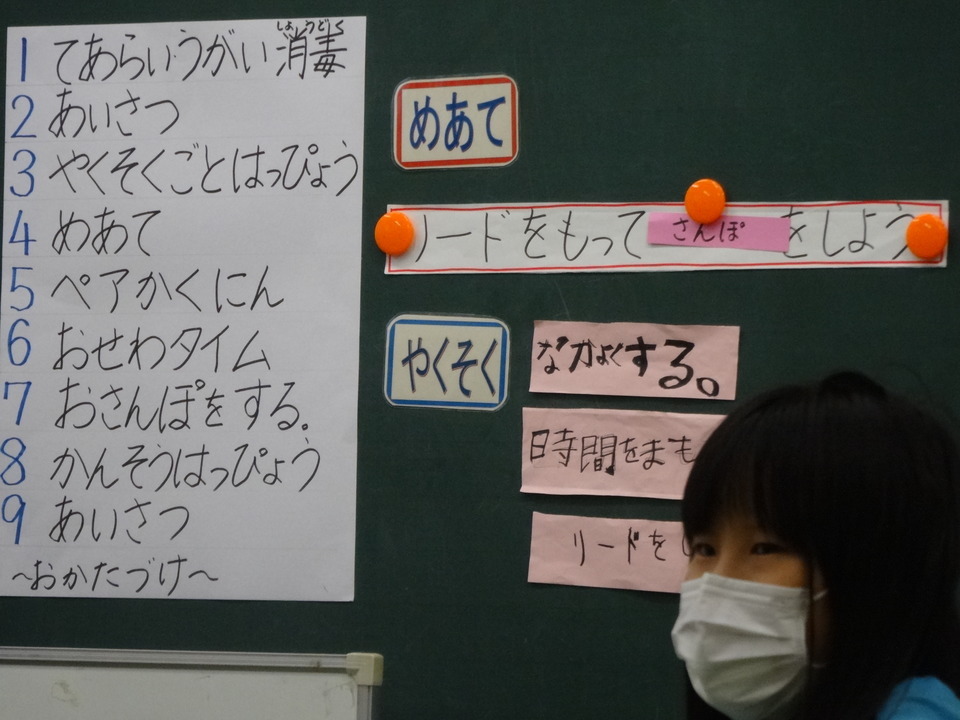 しょうどく
1 てあらいうがい消毒
2 あいさつ
3 やくそくごとはっぴょう
4 めあて
5 ペアかくにん
6 おせわタイム
7 おさんぽをする。
8 かんそうはっぴょう
9 あいさつ
～おかたづけ～
めあて
リードをもってさんぽをしよう
やくそく
なかよくする。
時間をまも
リードを